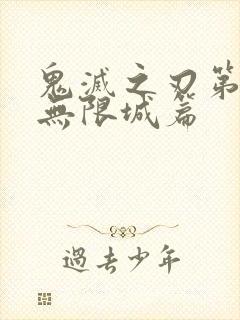 鬼滅之刃第
無限城篇
過去少年